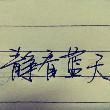 静看蓝天